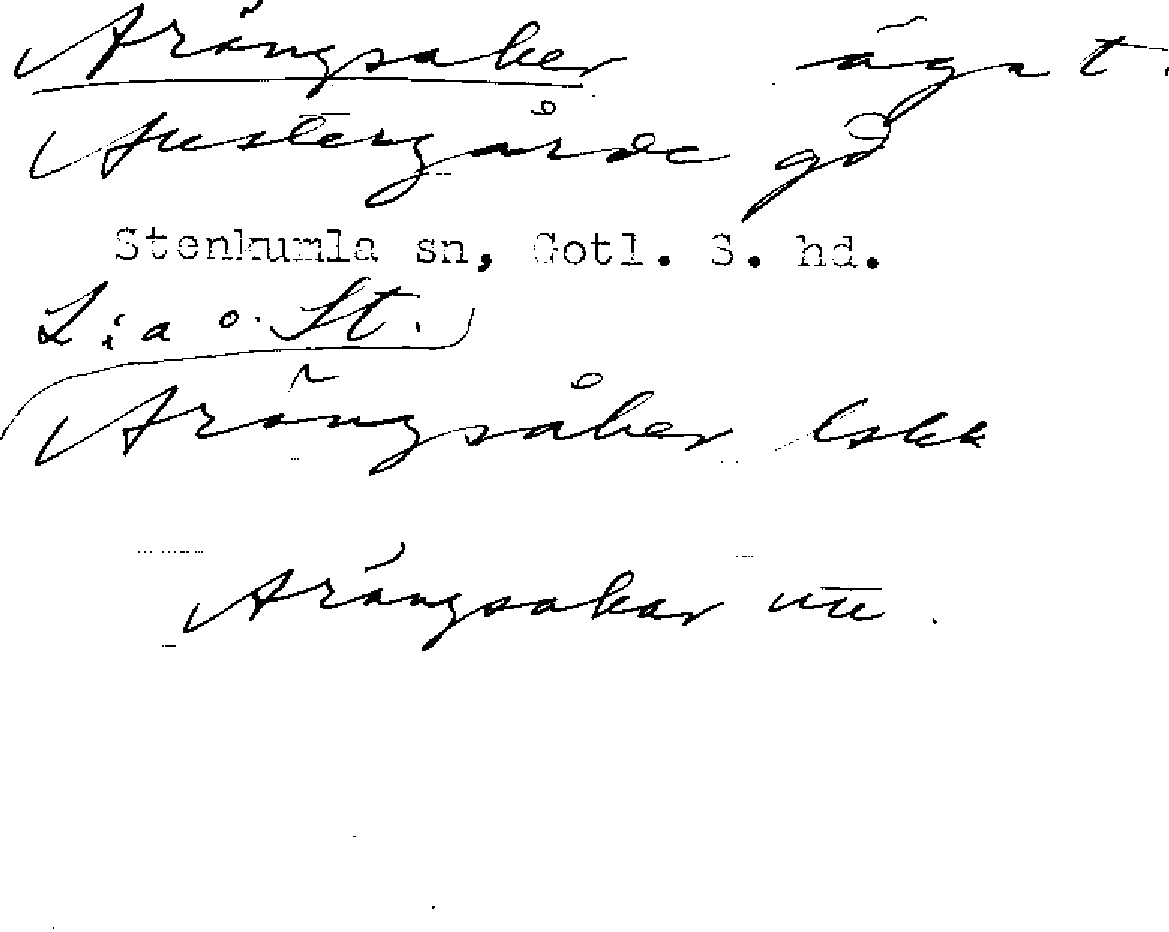 Arängsaker ägat.
Austergårde gd
Stenkumla sn, Gotl. S. hd.
L:a o. St.
Arängsåker lskk
Arängsakar utt.